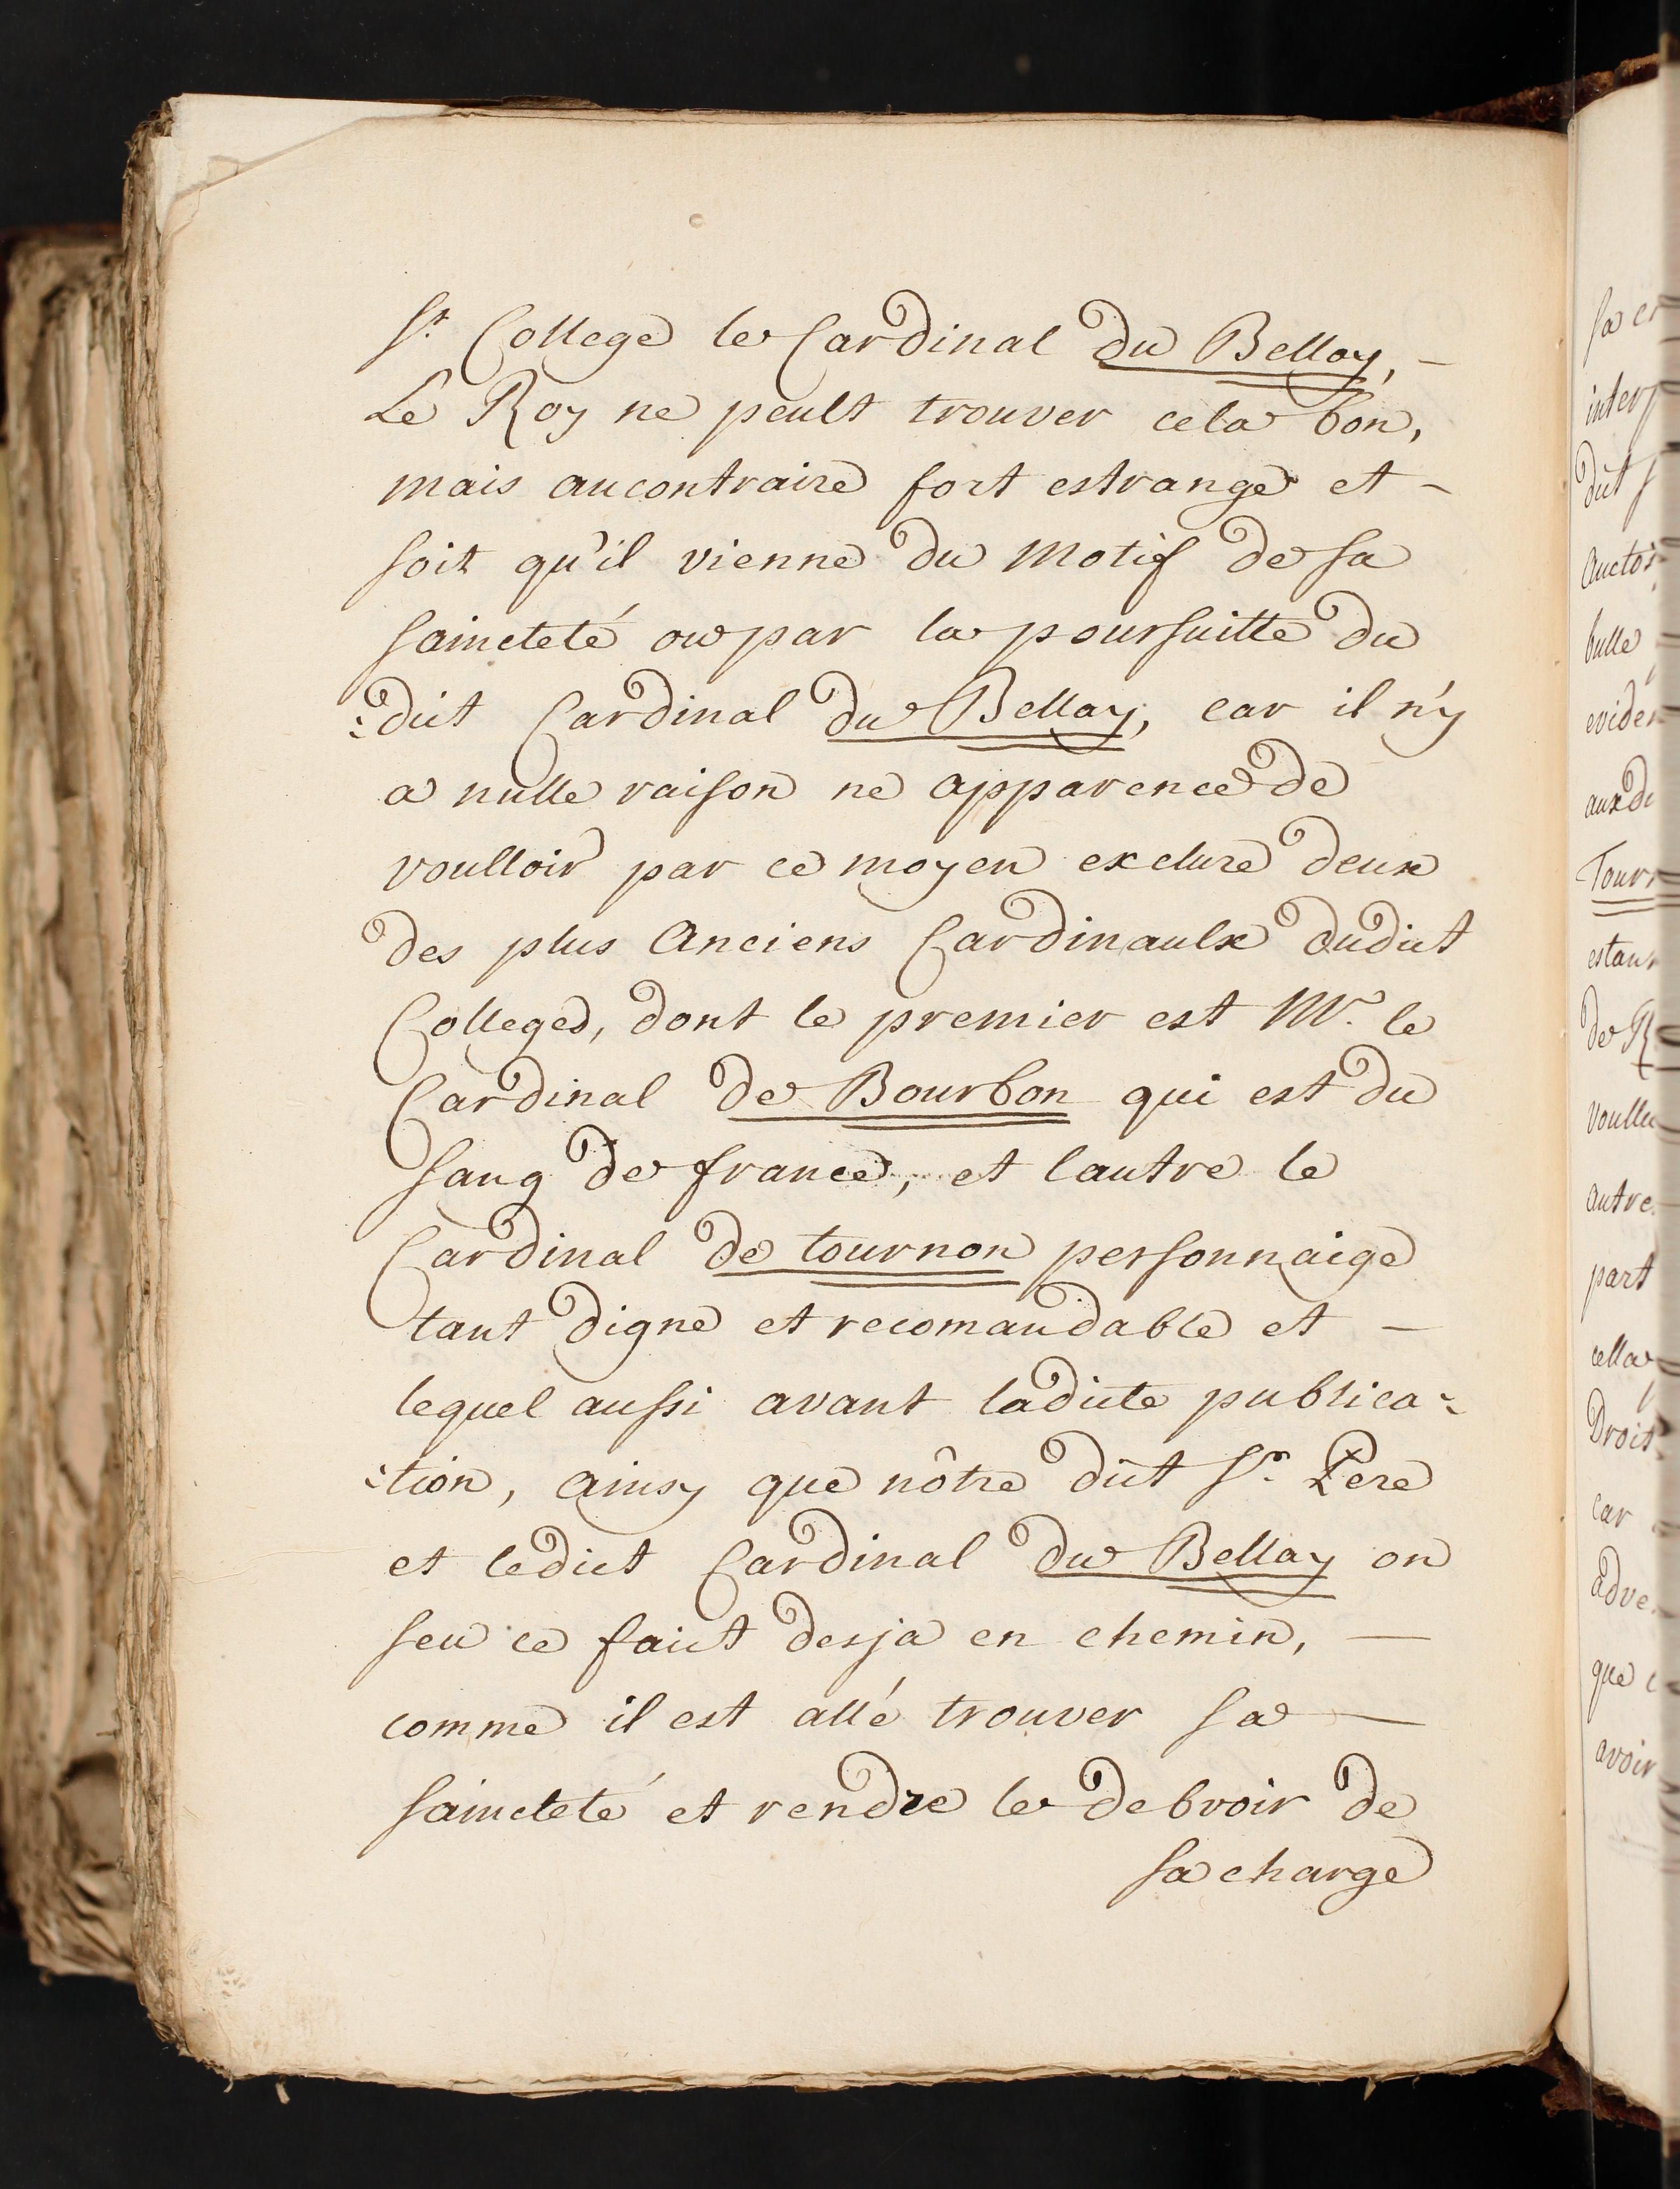 St. College le Cardinal du Bellay, —
Le Roy ne peult trouver cela bon,
mais aucontraire fort estrange et —
soit qu'il vienne du motif de sa
saincteté ou par la poursuitte du
:dict Cardinal du Bellay; car il n'y
a nulle raison ne apparence de
voulloir par ce moyen exclure deux
des plus Anciens Cardinaulx dudict
College, dont le premier est Mr. le
Cardinal de Bourbon qui est du
sang de france, et lautre le
Cardinal de tournon personnaige
tant digne et recomandable et —
lequel aussi avant ladicte publica:
:tion, ainsy que nôtre dict St. Pere
et ledict Cardinal du Bellay on
seu ce faict desja en chemin, —
comme il est allé trouver sa —
saincteté et rendre le debvoir de
sa charge
interp
auctor
bulle
eviden
auxdi
Tourn
estant
de R
autre
part
cella
Droit
car
adve
que
avoir